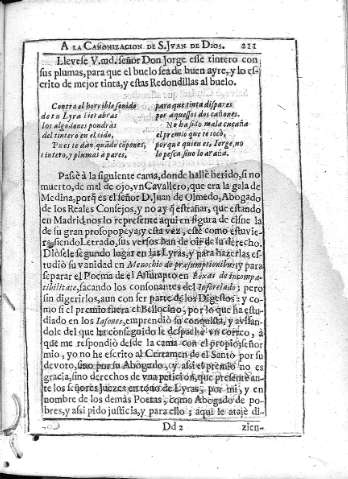 A LA CAÑONIZACION DE S. JVAN DE DIOS. 221
Llevese V.md. señor Don Jorge esse tintero con
sus plumas, para que el buelo sea de buen ayre, y lo es-
crito de mejor tinta, y estas Redondillas al buelo.
Contra el horrible sonido
de tu Lyra si et abras
los algodones pondràs
del tintero en el oìdo,
Pues te dan quãdo cõpones,
tintero, y plumas a pares,
para que tinta dispares
por aquessos dos cañones.
No ha sido mala cucaña
el premio que te tocò,
porque quien es, Jorge, no
lo pesca sino lo araña.
Passè à la siguiente cama, donde hallè herido, si no
muerto, de mal de ojo, vn Cavallero, que era la gala de
Medina, porq̃ es el señor D. Juan de Olmedo, Abogado
de los Reales Consejos, y no ay q̃ estrañar, que estando
en Madrid nos lo represente aqui en figura de cisne la
de su gran prosopopeya, y esta vez, estè como estuvie-
re, siendo Letrado, sus versos han de oir de su derecho.
Diòsele segundo lugar en las Lyras, y para hazerlas es-
tudiò su vanidad en Menochio de præsumptionibus, y para
separar el Poema de el Assumpto en Boxas de incompa-
tibilitate, sacando los consonantes del Inforciado; pero
sin digerirlos, aun con ser parte de los Digestos: y co-
mo si el premio fuera el Bellocino, por lo que ha estu-
diado en los Jasones, emprendiò su conquista, y avisan-
dole del que ha conseguido le despachè vn correo, à
que me respondiò desde la cama con el propio: señor
mio, yo no he escrito al Certamen de el Santo por su
devoto, sino por su Abogado, y assi el premio no es
gracia, sino derechos de vna peticion, que presentè an-
te los señores Juezes en tono de Lyras, por mi, y en
nombre de los demàs Poetas, como Abogado de po-
bres, y assi pido justicia, y para ello; aqui le atajè di-
Dd 2 zien-